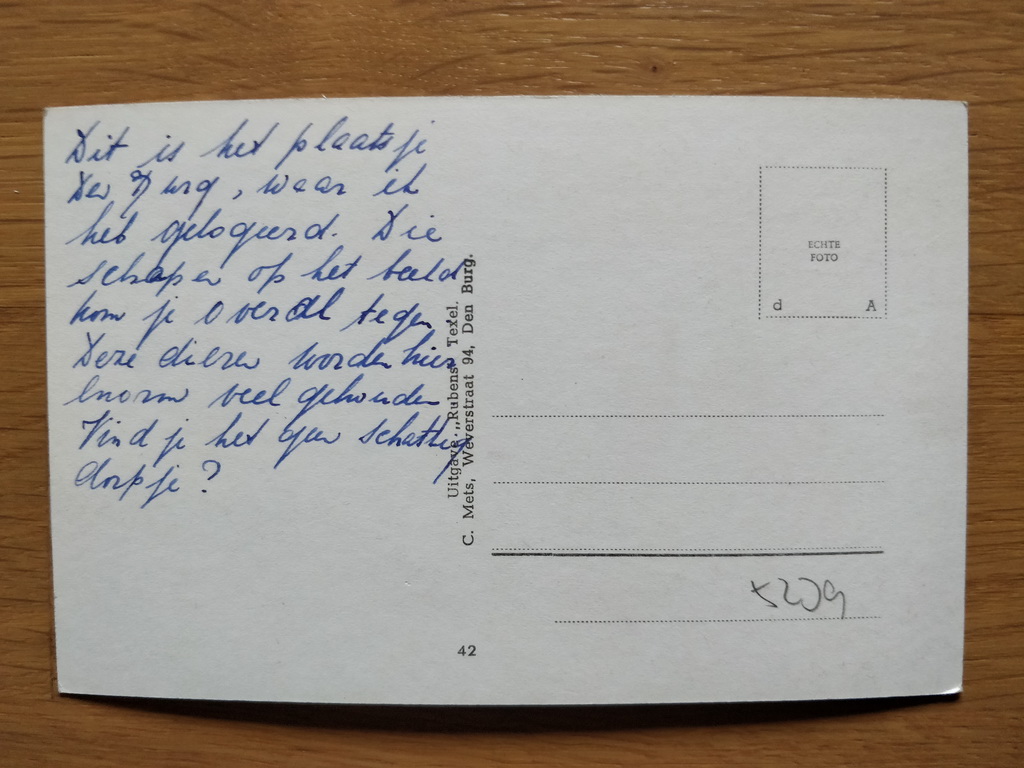 Dit is het plaatsje
Den Burg, waar ik
heb gelogeerd. Die
schapen op het beeld
kom je overal tegen.
Deze dieren worden hier
enorm veel gehouden
Vind je het geen schattig
dorpje?
Uitgave „Rubens" Texel.
C. Mets, Weverstraat 94, Den Burg.
ECHTE
FOTO
d A
42